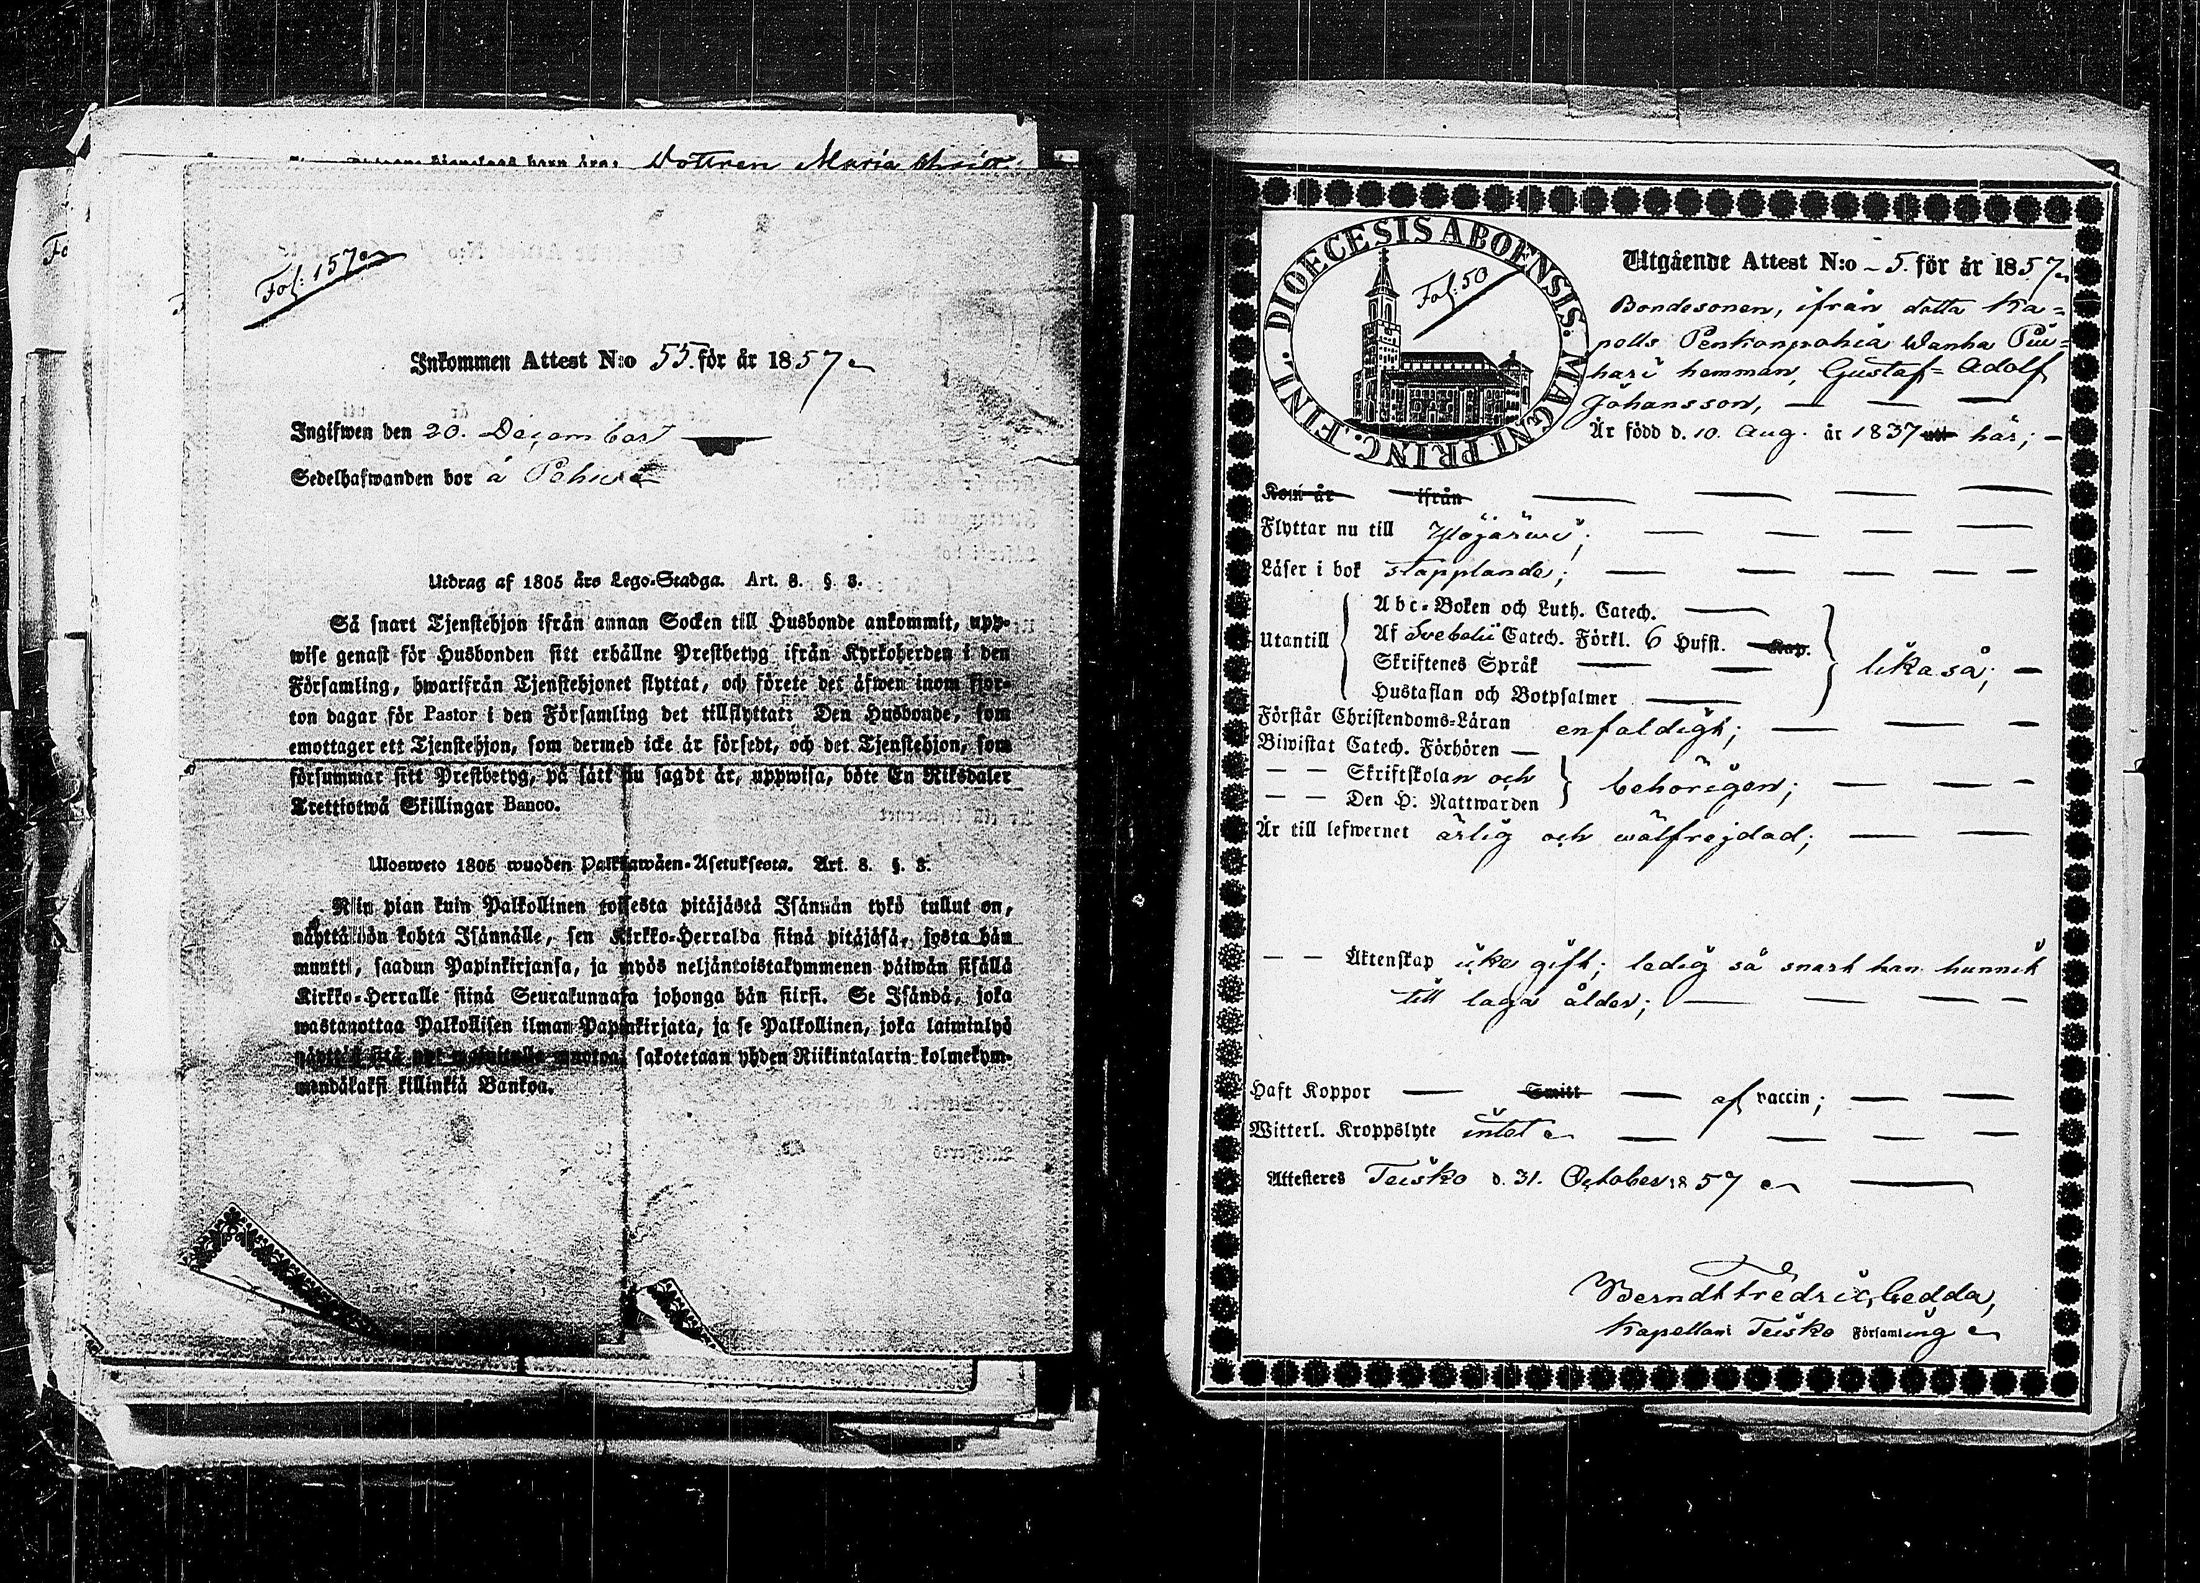 Dottren Maria
Fol: 157
Inkommen Attest N:o 55. för år 1857
Ingifwen den 20. December
Sedelhafwanden bor å Pohw
Utdrag af 1805 års Lego-Stadga. Art. 8. §. 3.
Så snart Tjenstehjon ifrån annan Socken till Husbonde ankommit, upp-
wise genast för Husbonden sitt erhållne Prestbetyg ifrån Kyrkoherden i den
Församling, hwarifrån Tjenstehjonet flyttat, och förete det äfwen inom fjor-
ton dagar för Pastor i den Församling det tillflyttat: Den Husbonde, som
emottager ett Tjenstehjon, som dermed icke är försedt, och det Tjenstehjon, som
försummar sitt Prestbetyg, på sätt nu sagdt är, uppwisa, böte En Riksdaler
Trettiotwå Skillingar Banco.
Ulosweto 1805 wuoden Palkkawäen-Asetuksesta. Art. 8. §. 3.
Niin pian kuin Palkollinen toisesta pitäjästä Isännän tykö tullut on,
näyttäköön kohta Isännälle, sen Kirkko-Herralda siinä pitäjäsä, josta hän
muutti, saadun Papinkirjansa, ja myös neljäntoistakymmenen päiwän sisällä
Kirkko-Herralle siinä Seurakunnasa johonga hän siirsi. Se Isändä, joka
wastanottaa Palkollisen ilman Papinkirjata, ja se Palkollinen, joka laiminlyö
näyttää sitä nyt mainitulla muotoa, sakotetaan yhden Riikintalarin kolmekym-
mendäkaksi killinkiä Bankoa.
DIOECESIS ABOENSIS. MAGNI PRINC. FINL.
Fol: 50
Utgående Attest N:o 5. för år 1857
Bondesonen, ifrån detta Ka=
pells Penkonpohia Wanha Pii=
hari hemman, Gustaf= Adolf
Johansson, — — —
Är född d. 10. Aug. år 1837 uti här; —
Kom år ifrån — — — —
Flyttar nu till Ylöjärwi; — — —
Läser i bok stapplande; — — — — —
Utantill
Abc-Boken och Luth. Catech. —
Af Svebelii Catech. Förkl. 6 Hufst. Kap.
Skriftenes Språk — —
Hustaflan och Botpsalmer —
likaså; —
Förstår Christendoms-Läran enfaldigt; — — —
Biwistat Catech. Förhören —
— — Skriftskolan och
— — Den H: Nattwarden
behörigen; — — —
Är till lefwernet ärlig och wälfrejdad; — —
— — Äktenskap icke gift; ledig så snart han hunnit
till laga ålder; — — — —
Haft Koppor — Smitt — af vaccin; — —
Witterl. Kroppslyte intet — — — —
Attesteres Teisko d. 31. October 1857 —
Berndt Fredric Gedda,
Kapellan i Teisko Församling